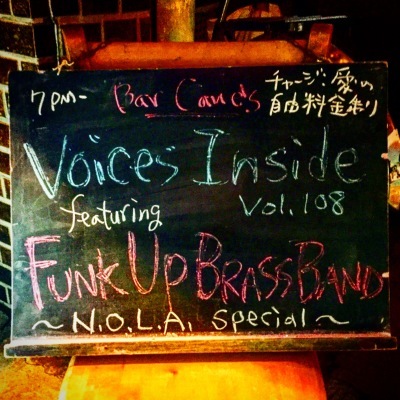 7PM-
Bar Cane's
チャージ:愛の
自由料金制り
Voices Inside
Vol.108
featuring
FUNK UP BRASS BAND
~N.O.L.A. Special~